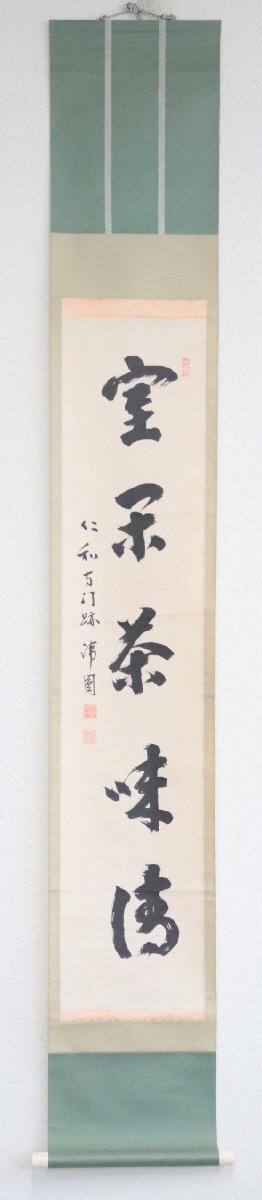 室閑茶味清
仁和寺門跡